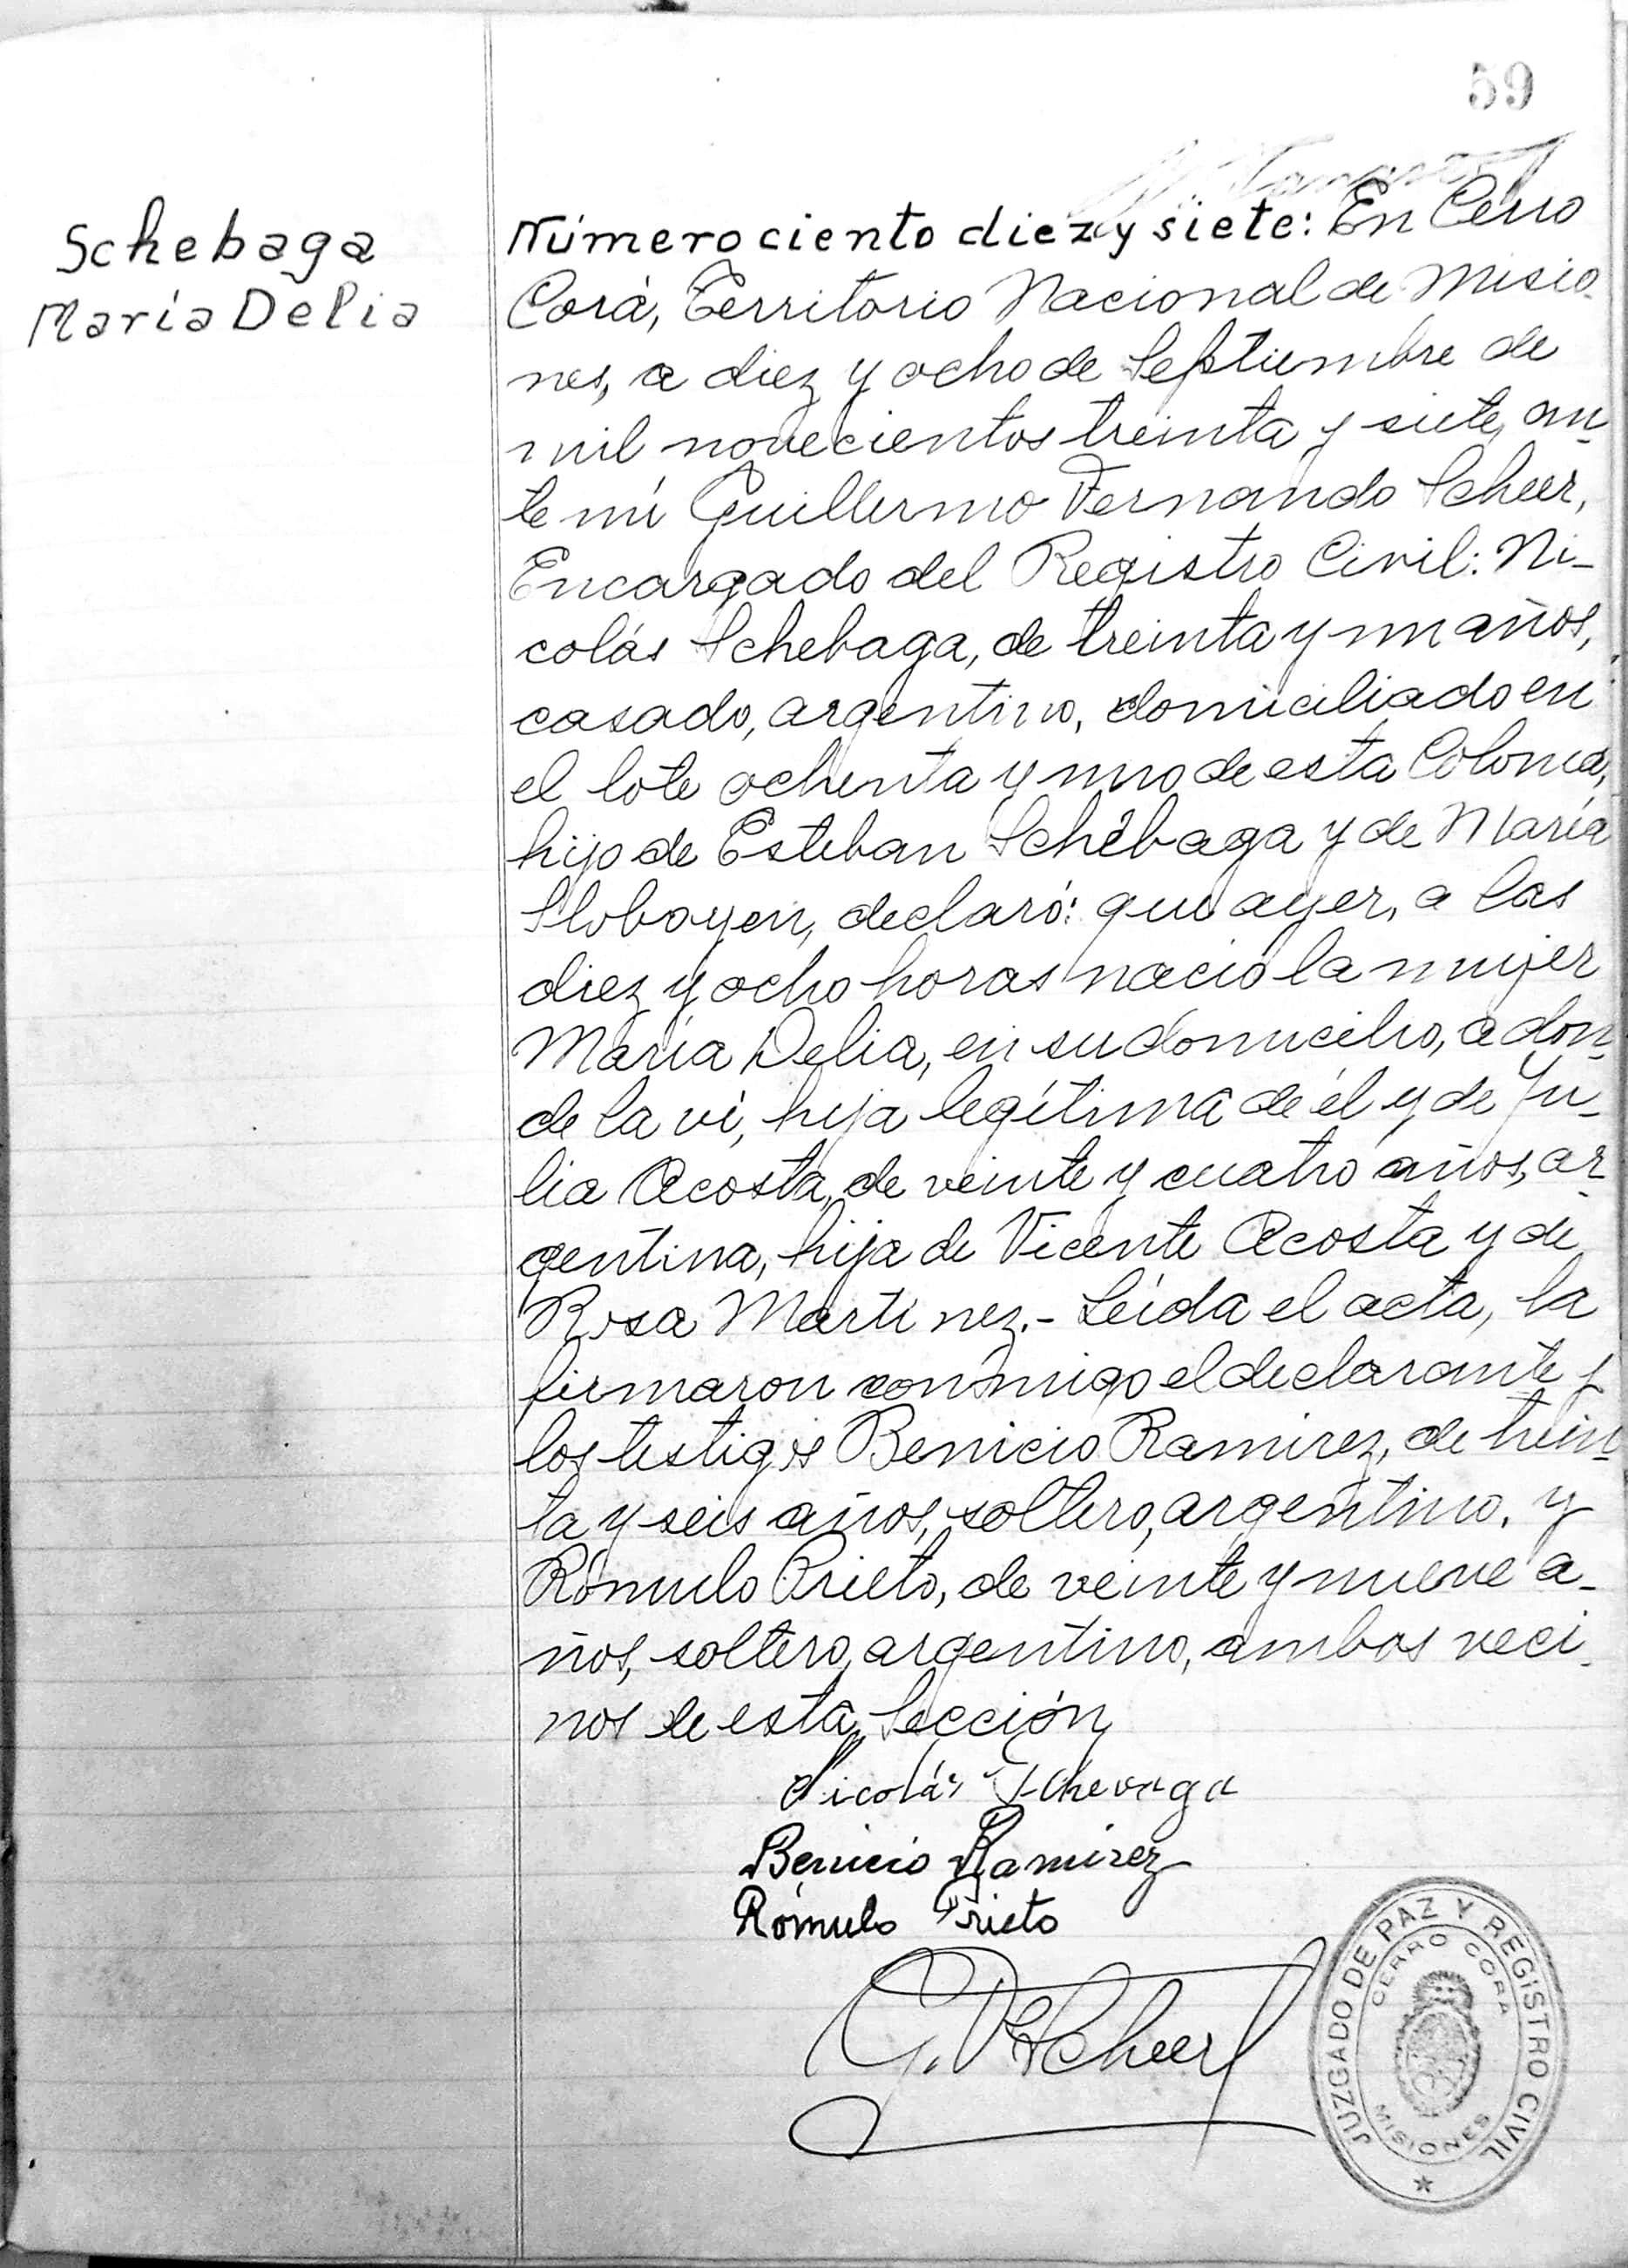 59
Schebaga
María Delia
Número ciento diez y siete: En Cerro
Corá, Territorio Nacional de Misio-
nes, a diez y ocho de Septiembre de
mil novecientos treinta y siete, an-
te mí Guillermo Fernando Scheer,
Encargado del Registro Civil: Ni-
colás Schebaga, de treinta y un años,
casado, argentino, domiciliado en
el lote ochenta y uno de esta Colonia,
hijo de Esteban Schebaga y de María
Sloboyen, declaró: que ayer, a las
diez y ocho horas nació la mujer
María Delia, en su domicilio, a don-
de la ví, hija legítima de él y de Ju-
lia Acosta, de veinte y cuatro años, ar-
gentina, hija de Vicente Acosta y de
Rosa Martinez.- Leída el acta, la
firmaron conmigo el declarante y
los testigos Benicio Ramirez, de trein-
ta y seis años, soltero, argentino, y
Rómulo Prieto, de veinte y nueve a-
ños, soltero, argentino, ambos veci-
nos de esta Sección
Nicolás Schevaga
Benicio Ramirez
Rómulo Prieto
G. F. Scheer
JUZGADO DE PAZ Y REGISTRO CIVIL
CERRO CORA
MISIONES